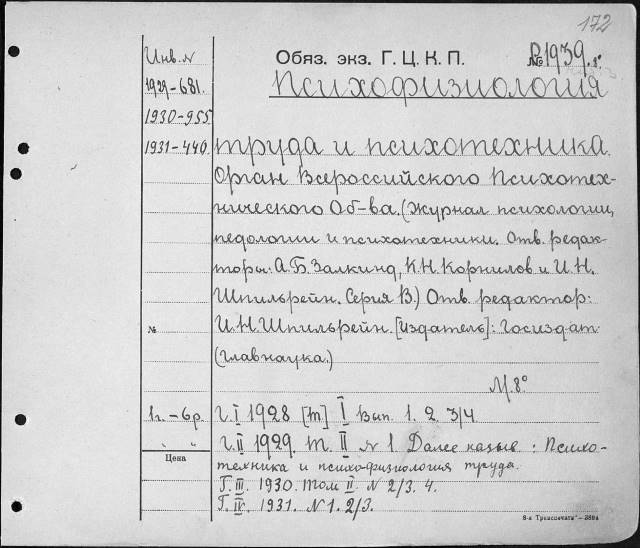 172
Инв. №
Обяз. экз. Г. Ц. К. П.
№ 1939. 8°
1929-681.
Психофизиология
1930-955
1931-440.
труда и психотехника.
Орган Всероссийского Психотех-
нического Об-ва. (Журнал психологии,
педологии и психотехники. Отв. редак-
торы: А.Б. Залкинд, К.Н. Корнилов и И.Н.
Шпильрейн. Серия В.) Отв. редактор:
№
И.Н. Шпильрейн. [Издатель]: Госиздат
(Главнаука.)
М. 8°
1г. - 6р.
Г. I 1928 [т.] I Вып. 1. 2. 3/4
" "
Г. II 1929. Т. II № 1. Далее назыв.: Психо-
Цена
техника и психо-физиология труда.
Г. III. 1930. Том II. N 2/3. 4.
Г. IV. 1931. N 1. 2/3.